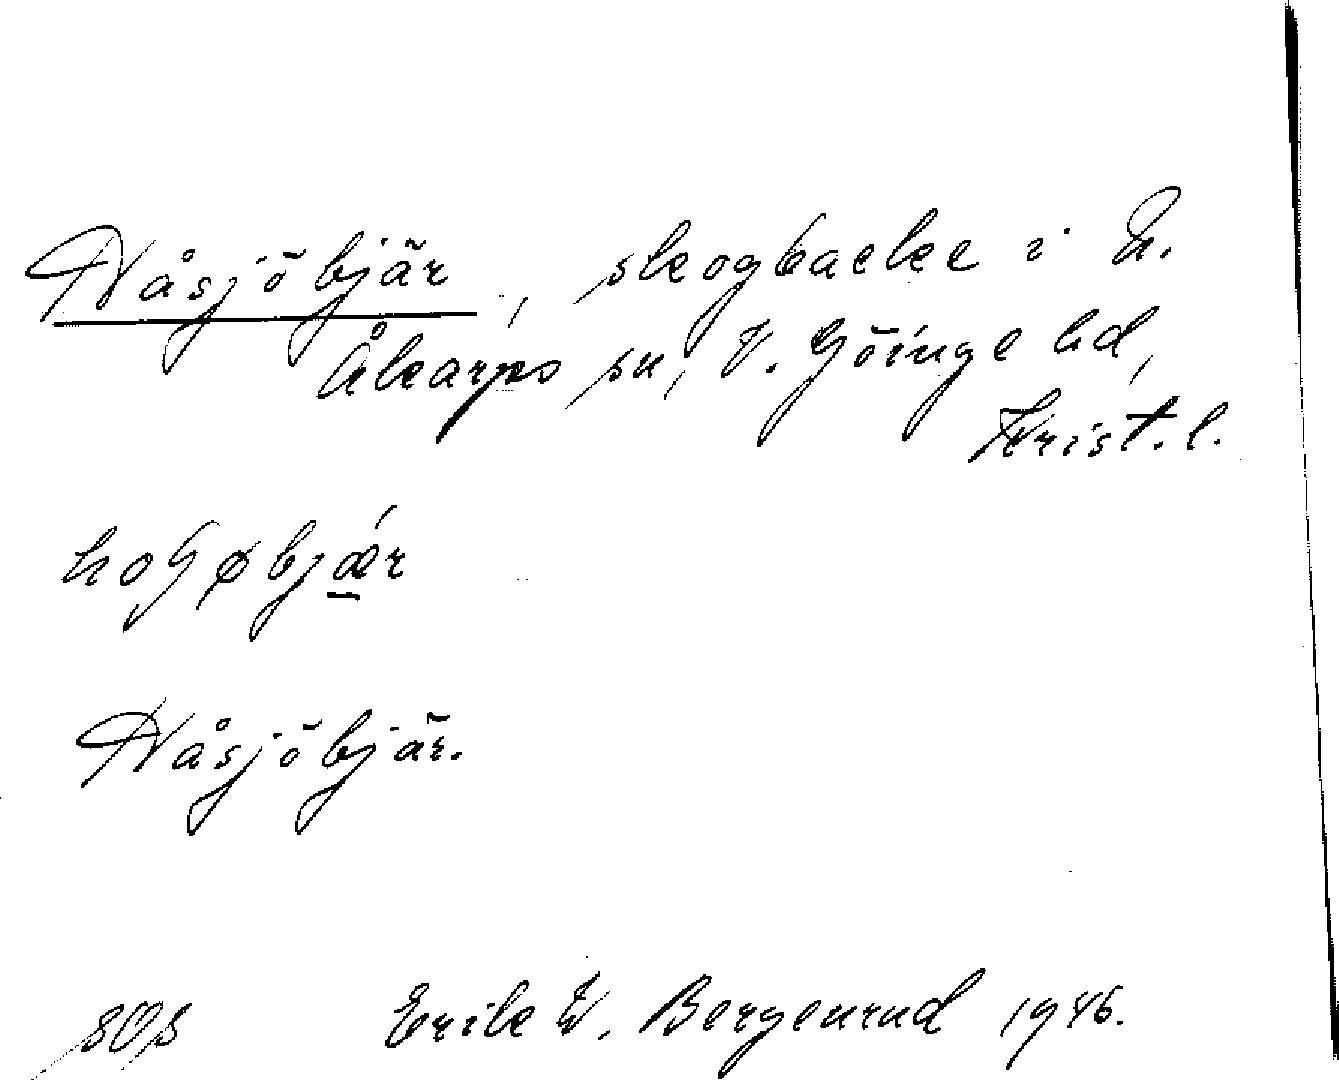 Håsjöbjär, skogbacke i N.
Åkarps sn, V. Göinge hd,
Krist. l.
hoʃøbjǽ̱r
Håsjöbjär.
Erik W. Bergenrud 1946.